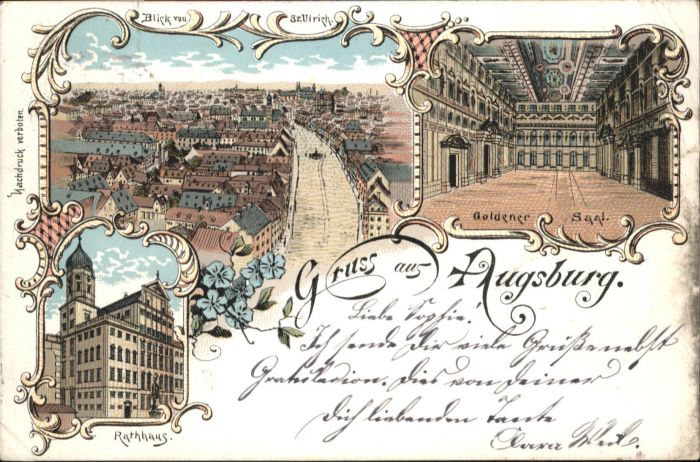 Blick von St. Ulrich.
Nachdruck verboten.
Goldener Saal.
Gruss aus Augsburg.
Rathhaus.
Liebe Sophie!
Ich sende Dir viele Grüße nebst
Gratulation. Dies von Deiner
Dich liebenden Tante
Clara Weil.